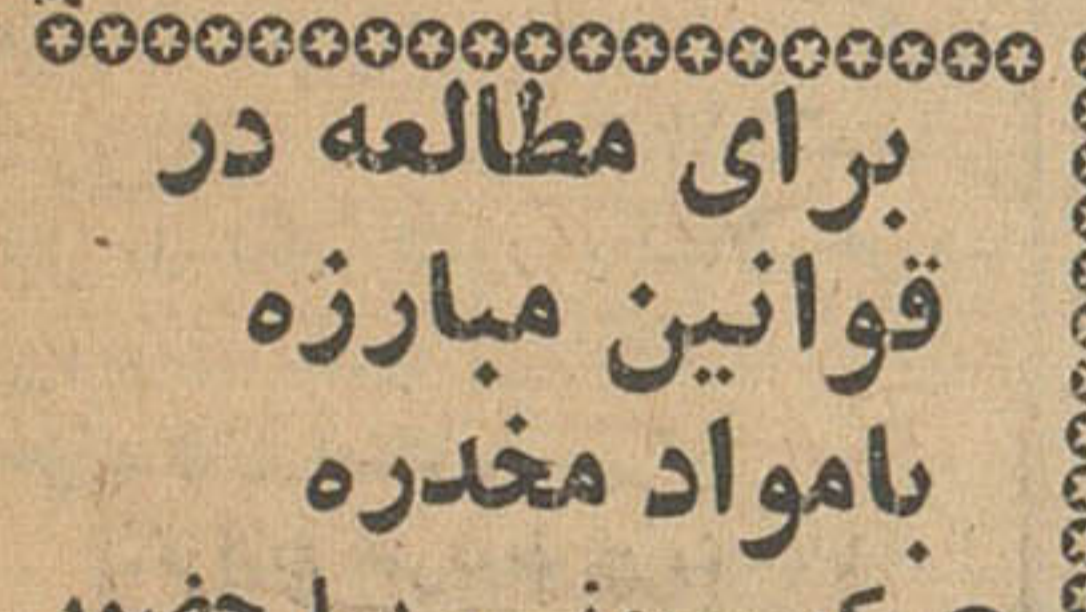 برای مطالعه در
قوانین مبارزه
بامواد مخدره